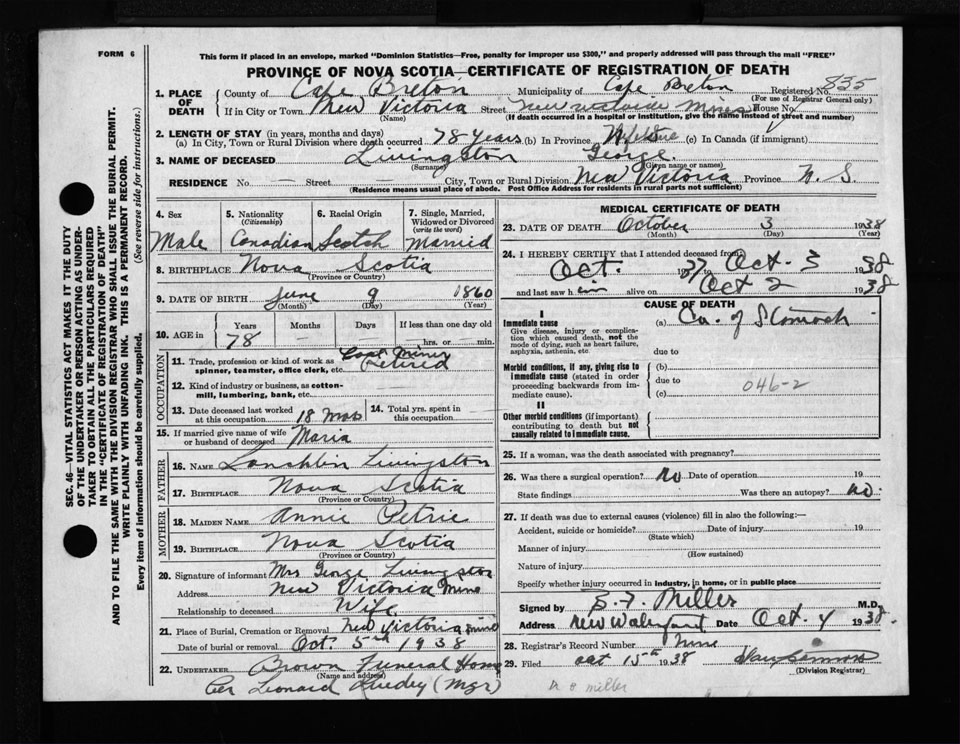 FORM 6
This form if placed in an envelope, marked "Dominion Statistics—Free, penalty for improper use $300," and properly addressed will pass through the mail "FREE"
PROVINCE OF NOVA SCOTIA—CERTIFICATE OF REGISTRATION OF DEATH
1. PLACE OF DEATH
County of Cape Breton Municipality of Cape Breton Registered No. 835
(For use of Registrar General only)
If in City or Town New Victoria Street House No.
(Name) (If death occurred in a hospital or institution, give the name instead of street and number)
2. LENGTH OF STAY (in years, months and days)
(a) In City, Town or Rural Division where death occurred 78 years (b) In Province (c) In Canada (if immigrant)
3. NAME OF DECEASED Livingston George
(Surname) (Given name or names)
RESIDENCE No. — Street City, Town or Rural Division New Victoria Province N. S.
(Residence means usual place of abode. Post Office Address for residents in rural parts not sufficient)
4. Sex Male
5. Nationality (Citizenship) Canadian
6. Racial Origin Scotch
7. Single, Married, Widowed or Divorced (write the word) Married
8. BIRTHPLACE Nova Scotia
(Province or Country)
9. DATE OF BIRTH June 9 1860
(Month) (Day) (Year)
10. AGE in Years 78 Months — Days — If less than one day old — hrs. or — min.
OCCUPATION
11. Trade, profession or kind of work as spinner, teamster, office clerk, etc. Coal Miner Retired
12. Kind of industry or business, as cotton-mill, lumbering, bank, etc.
13. Date deceased last worked at this occupation 18 Mos
14. Total yrs. spent in this occupation
15. If married give name of wife or husband of deceased Maria
FATHER
16. NAME Lauchlin Livingston
17. BIRTHPLACE Nova Scotia
(Province or Country)
MOTHER
18. MAIDEN NAME Annie Petrie
19. BIRTHPLACE Nova Scotia
(Province or Country)
20. Signature of informant Mrs George Livingston
Address New Victoria Mines
Relationship to deceased Wife
21. Place of Burial, Cremation or Removal New Victoria Mines
Date of burial or removal Oct. 5th 1938
22. UNDERTAKER Brown Funeral Home
(Name and address)
Per Leonard (Mgr)
MEDICAL CERTIFICATE OF DEATH
23. DATE OF DEATH October 3 1938
(Month) (Day) (Year)
24. I HEREBY CERTIFY that I attended deceased from
Oct. 1937 to Oct. 3 1938
and last saw him alive on Oct 2 1938
CAUSE OF DEATH
I
Immediate cause
Give disease, injury or complication which caused death, not the mode of dying, such as heart failure, asphyxia, asthenia, etc.
(a) Ca. of Stomach
due to
Morbid conditions, if any, giving rise to immediate cause (stated in order proceeding backwards from immediate cause).
(b)
due to
(c)
046-2
II
Other morbid conditions (if important) contributing to death but not causally related to immediate cause.
25. If a woman, was the death associated with pregnancy?
26. Was there a surgical operation? No Date of operation 19
State findings Was there an autopsy? No
27. If death was due to external causes (violence) fill in also the following:—
Accident, suicide or homicide? Date of injury 19
(State which)
Manner of injury
(How sustained)
Nature of injury
Specify whether injury occurred in industry, in home, or in public place
Signed by Miller M.D.
Address New Waterford Date Oct. 4 1938.
28. Registrar's Record Number Nine
29. Filed Oct 15th 1938
(Division Registrar)
miller
SEC. 46—VITAL STATISTICS ACT MAKES IT THE DUTY
OF THE UNDERTAKER OR PERSON ACTING AS UNDER-
TAKER TO OBTAIN ALL THE PARTICULARS REQUIRED
IN THE "CERTIFICATE OF REGISTRATION OF DEATH"
AND TO FILE THE SAME WITH THE DIVISION REGISTRAR WHO SHALL ISSUE THE BURIAL PERMIT.
WRITE PLAINLY WITH UNFADING INK. THIS IS A PERMANENT RECORD.
Every item of information should be carefully supplied. (See reverse side for instructions.)